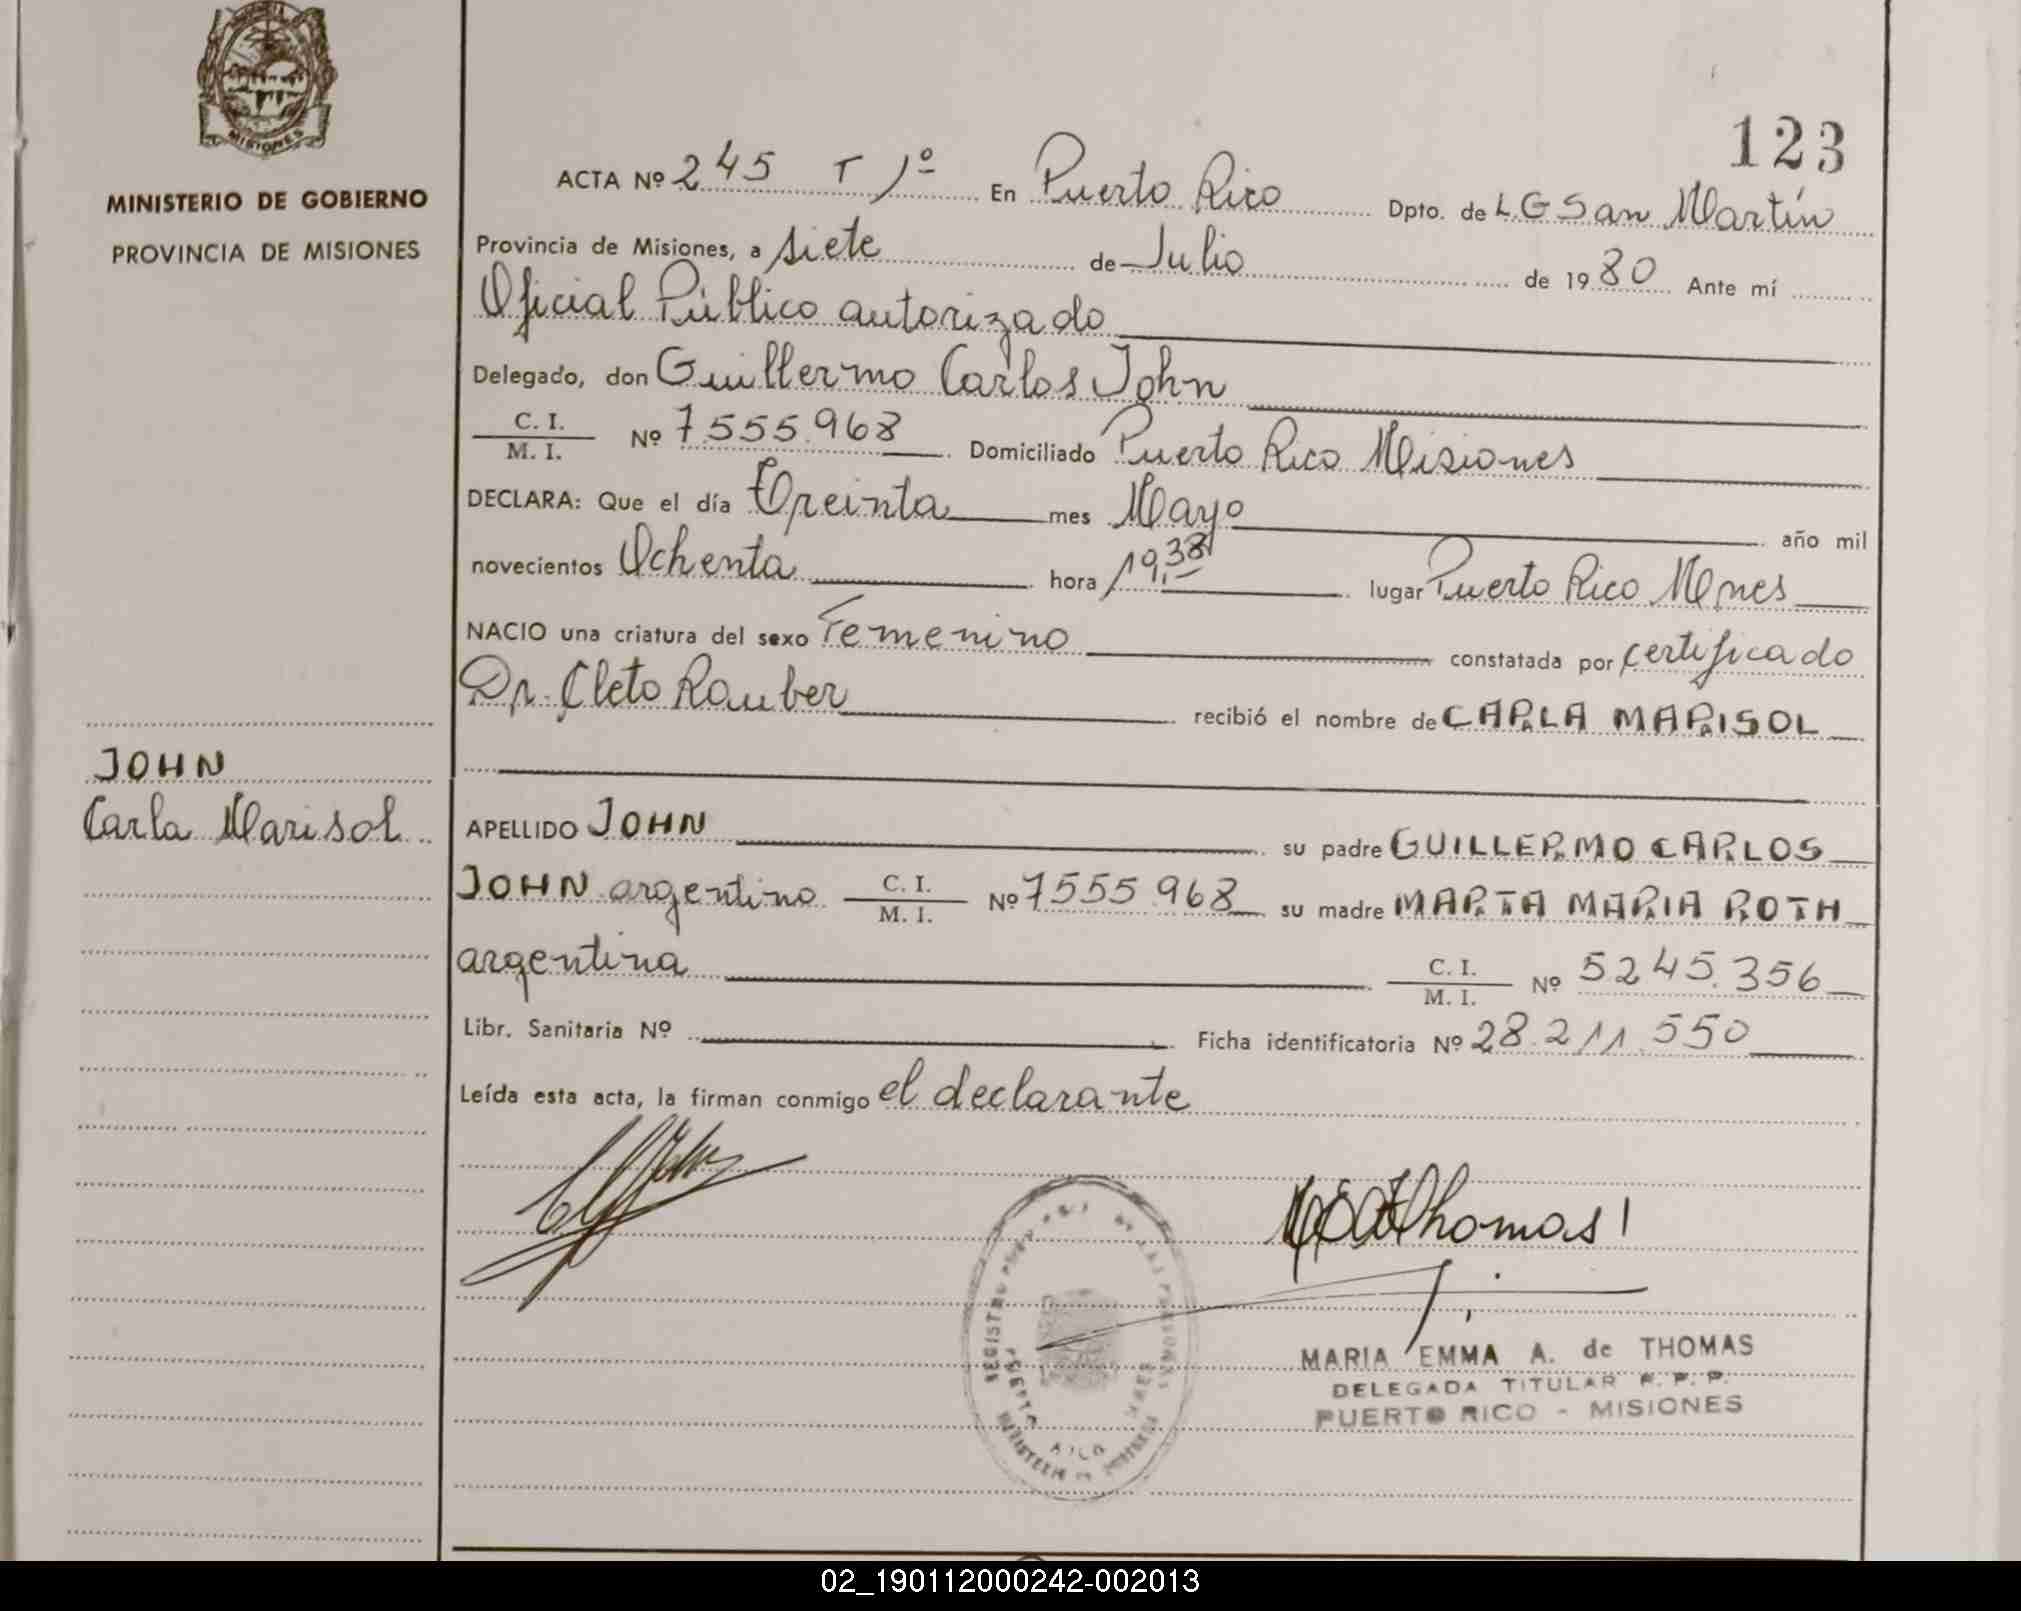 MISIONES
MINISTERIO DE GOBIERNO
PROVINCIA DE MISIONES
JOHN
Carla Marisol
123
ACTA Nº 245 T 1º En Puerto Rico Dpto. de L G San Martín
Provincia de Misiones, a siete de Julio de 1980 Ante mí
Oficial Público autorizado
Delegado, don Guillermo Carlos John
C. I.
M. I. Nº 7.555.968 Domiciliado Puerto Rico Misiones
DECLARA: Que el día Treinta mes Mayo año mil
novecientos Ochenta hora 19,38 lugar Puerto Rico Mnes
NACIO una criatura del sexo Femenino constatada por certificado
Dr. Cleto Rauber recibió el nombre de CARLA MARISOL
APELLIDO JOHN su padre GUILLERMO CARLOS
JOHN argentino C. I. M. I. Nº 7555.968 su madre MARTA MARIA ROTH
argentina C. I. M. I. Nº 5245.356
Libr. Sanitaria Nº Ficha identificatoria Nº 28.211.550
Leída esta acta, la firman conmigo el declarante
Thomas
MARIA EMMA A. de THOMAS
DELEGADA TITULAR R. P. P.
PUERTO RICO - MISIONES
REGISTRO DE LAS PERSONAS
PUERTO RICO
MINISTERIO DE GOBIERNO
02_190112000242-002013